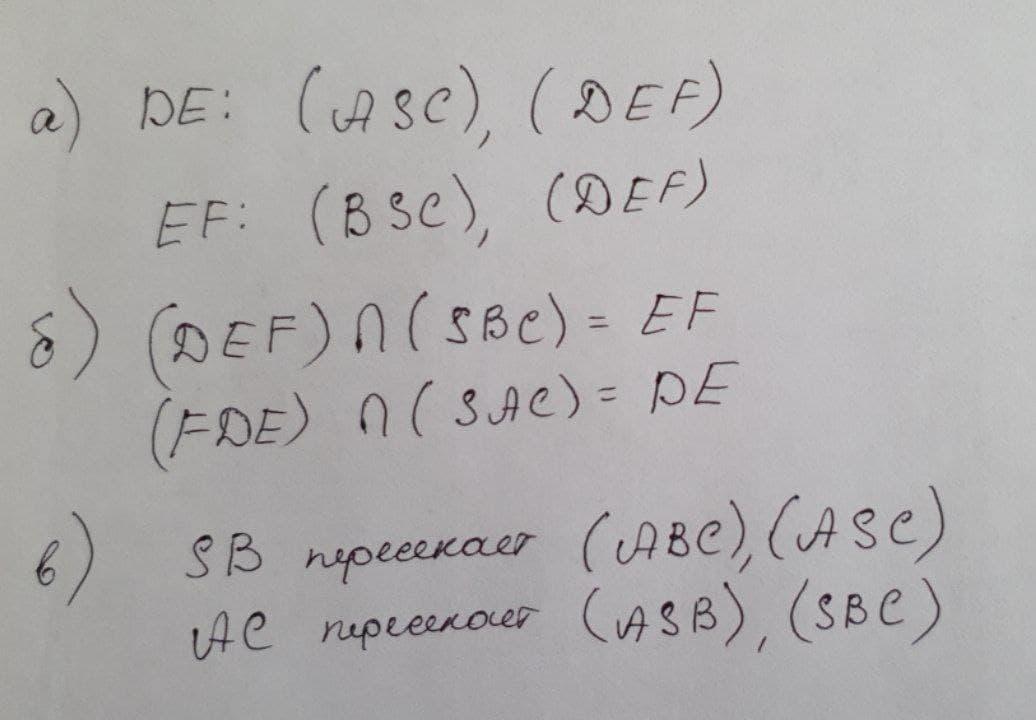 а) DE: (ASC), (DEF)
EF: (BSC), (DEF)
б) (DEF) ∩ (SBC) = EF
(FDE) ∩ (SAC) = DE
в) SB пересекает (ABC), (ASC)
AC пересекает (ASB), (SBC)